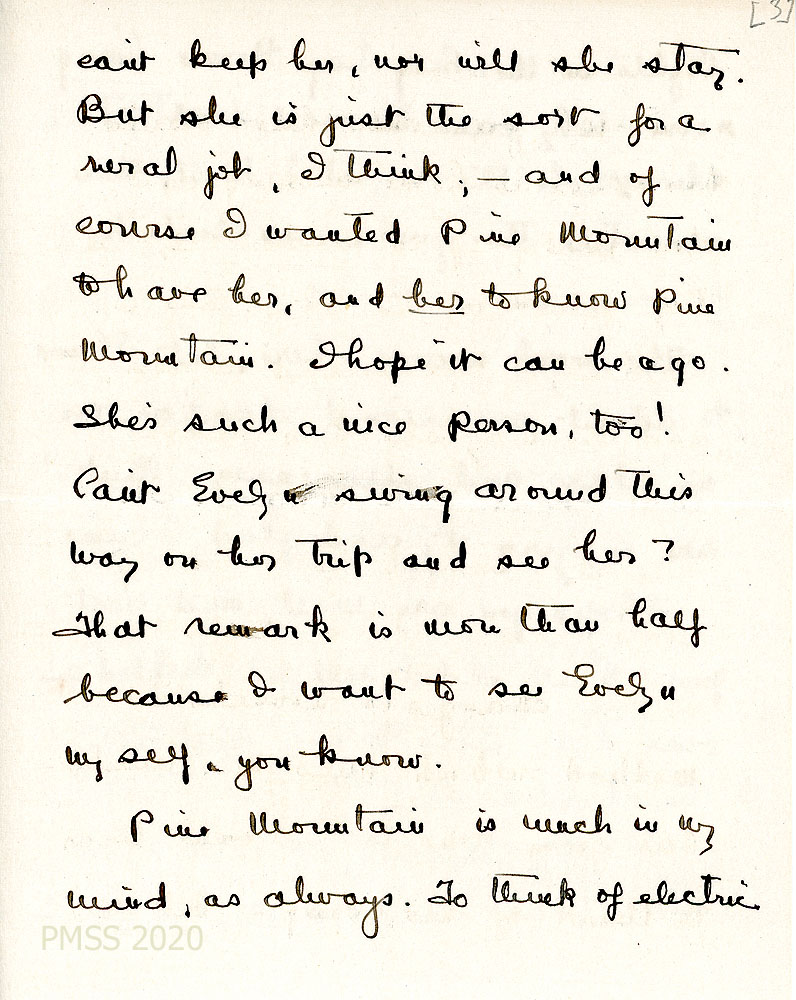 [3]
can't keep her, nor will she stay.
But she is just the sort for a
rural job, I think, — and of
course I wanted Pine Mountain
to have her, and her to know Pine
Mountain. I hope it can be a go.
She's such a nice person, too!
Can't Evelyn swing around this
way on her trip and see her?
That remark is more than half
because I want to see Evelyn
myself, you know.
Pine Mountain is much in my
mind, as always. To think of electric
PMSS 2020